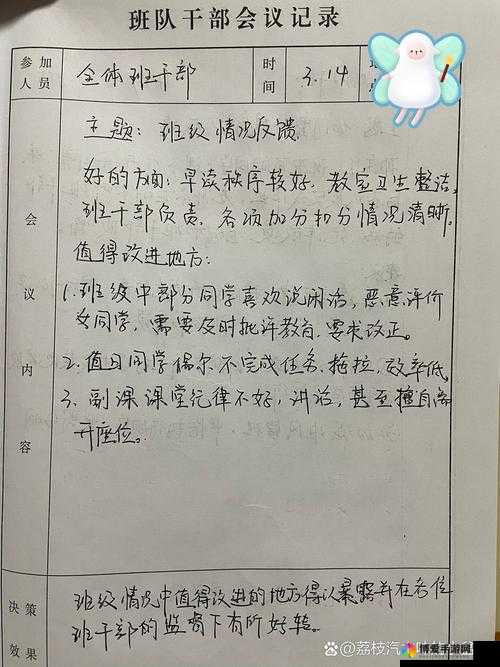 班队干部会议记录
参加人员 全体班干部 时间 3.14
会议内容
主题：班级情况反馈
好的方面：早读秩序较好．教室卫生整洁．
班干部负责．各项加分扣分情况清晰．
值得改进地方：
1.班级中部分同学喜欢说闲话，恶意评价
女同学，需要及时批评教育，要求改正。
2.值日同学偶尔不完成任务．拖拉，效率低．
3.副课课堂纪律不好，讲话，甚至擅自离
开座位。
决策效果
班级情况中值得改进的地方得以暴露并在各位
班干部的监督下有所好转。
荔枝汽
博爱手游网